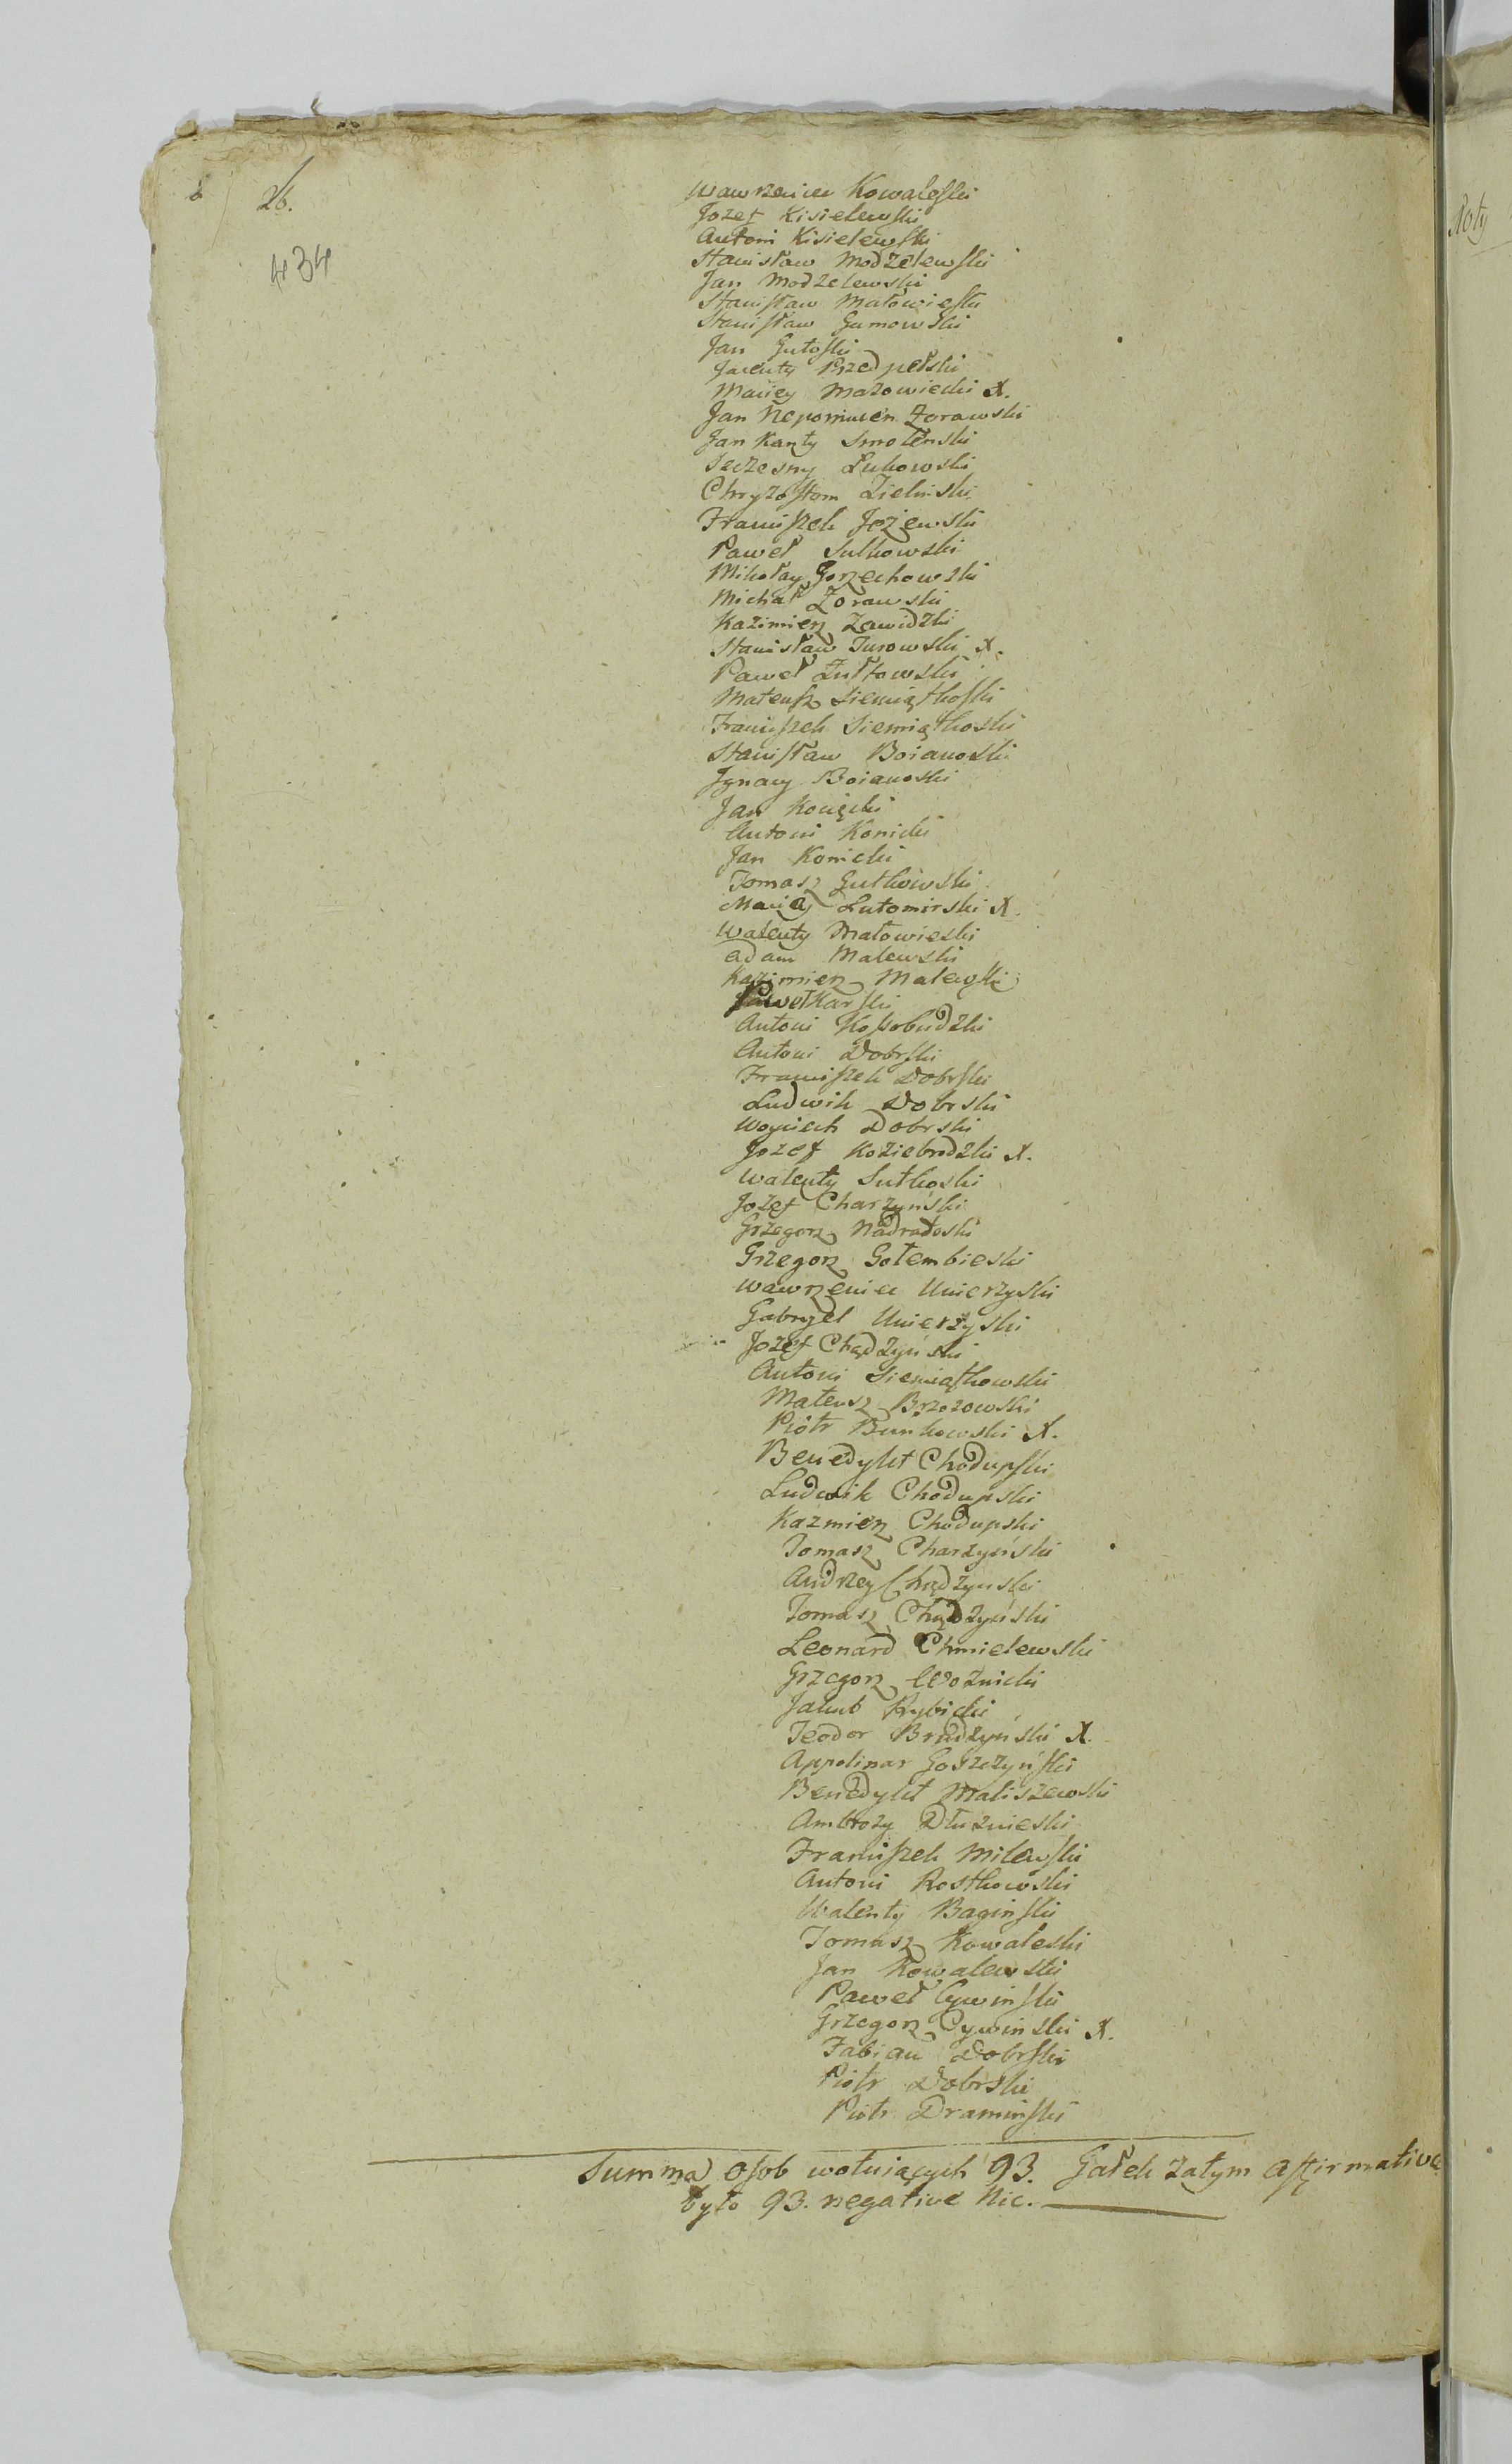 26.
434
Wawrzeniec Kowaleski
Jozef Kisielewski
Antoni Kisielewski
Stanisław Modzelewski
Jan Modzelewski
Stanisław Małowieski
Stanisław Gumowski
Jan Gutoski
Jacenty Przedpełski
Maciey Mazowiecki X.
Jan Nepomucen Zorawski
Jan Kanty Smolenski
Sczesny Łukowski
Chryzostom Zielinski
Franciszek Jeżewski
Paweł Sulkowski
Mikołay Gorzechowski
Michał Zorawski
Kazimierz Zawidzki
Stanisław Turowski X.
Paweł Zułtowski
Mateusz Siemiątkoski
Franciszek Siemiątkoski
Stanisław Boianoski
Jgnacy Boianoski
Jan Konicki
Antoni Konicki
Jan Konicki
Tomasz Gutkowski
Maciey Lutomirski X.
Walenty Małowieski
Adam Malewski
Kazimierz Malewski
Paweł Karski
Antoni Kossobudzki
Antoni Dobrski
Franciszek Dobrski
Ludwik Dobrski
Woyciech Dobrski
Jozef Koziebrodzki X.
Walenty Sutkoski
Jozef Charzyński
Grzegorz Nadratoski
Grzegorz Gołembieski
Wawrzeniec Unierzyski
Gabryel Unierzyski
Jozef Chądzyński
Antoni Siemiątkowski
Mateusz Brzozowski
Piotr Bunkowski X.
Benedykt Chodupski
Ludwik Chodupski
Kazmierz Chodupski
Tomasz Charzyński
Andrzey Chądzynski
Tomasz Chądzyński
Leonard Chmielewski
Grzegorz Woznicki
Jakub Rybicki
Teodor Brudzyński X.
Appolinar Goszczyński
Benedykt Maliszewski
Ambroży Dłuznieski
Franciszek Milewski
Antoni Rostkowski
Walenty Baginski
Tomasz Kowaleski
Jan Kowalewski
Paweł Cywinski
Grzegorz Cywinski X.
Fabian Dobrski
Piotr Dobrski
Piotr Draminski
Summa osob wotuiących 93. Gałek zatym affirmative
było 93. negative Nic.
Noty